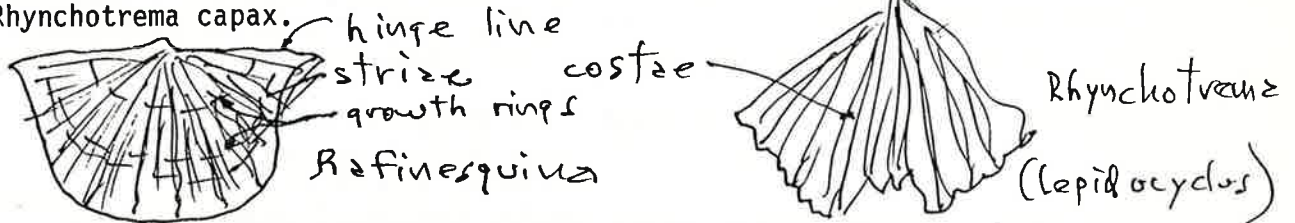 Rhynchotrema capax.
hinge line
striae
growth rings
Rafinesquina
costae
Rhynchotrema
(lepidocyclus)